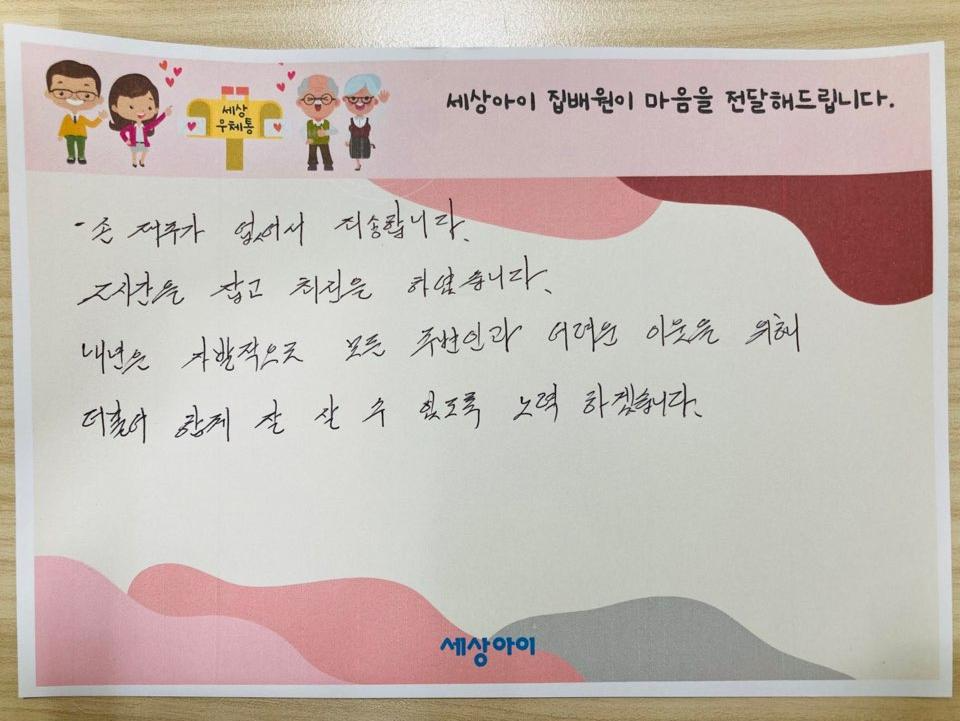 세상아이 집배원이 마음을 전달해드립니다.
세상
우체통
- 손 재주가 없어서 죄송합니다.
2시간을 잡고 최선을 하였습니다.
내년은 자발적으로 모든 주변인과 어려운 이웃을 위해
더불어 함께 잘 살 수 있도록 노력 하겠습니다.
세상아이